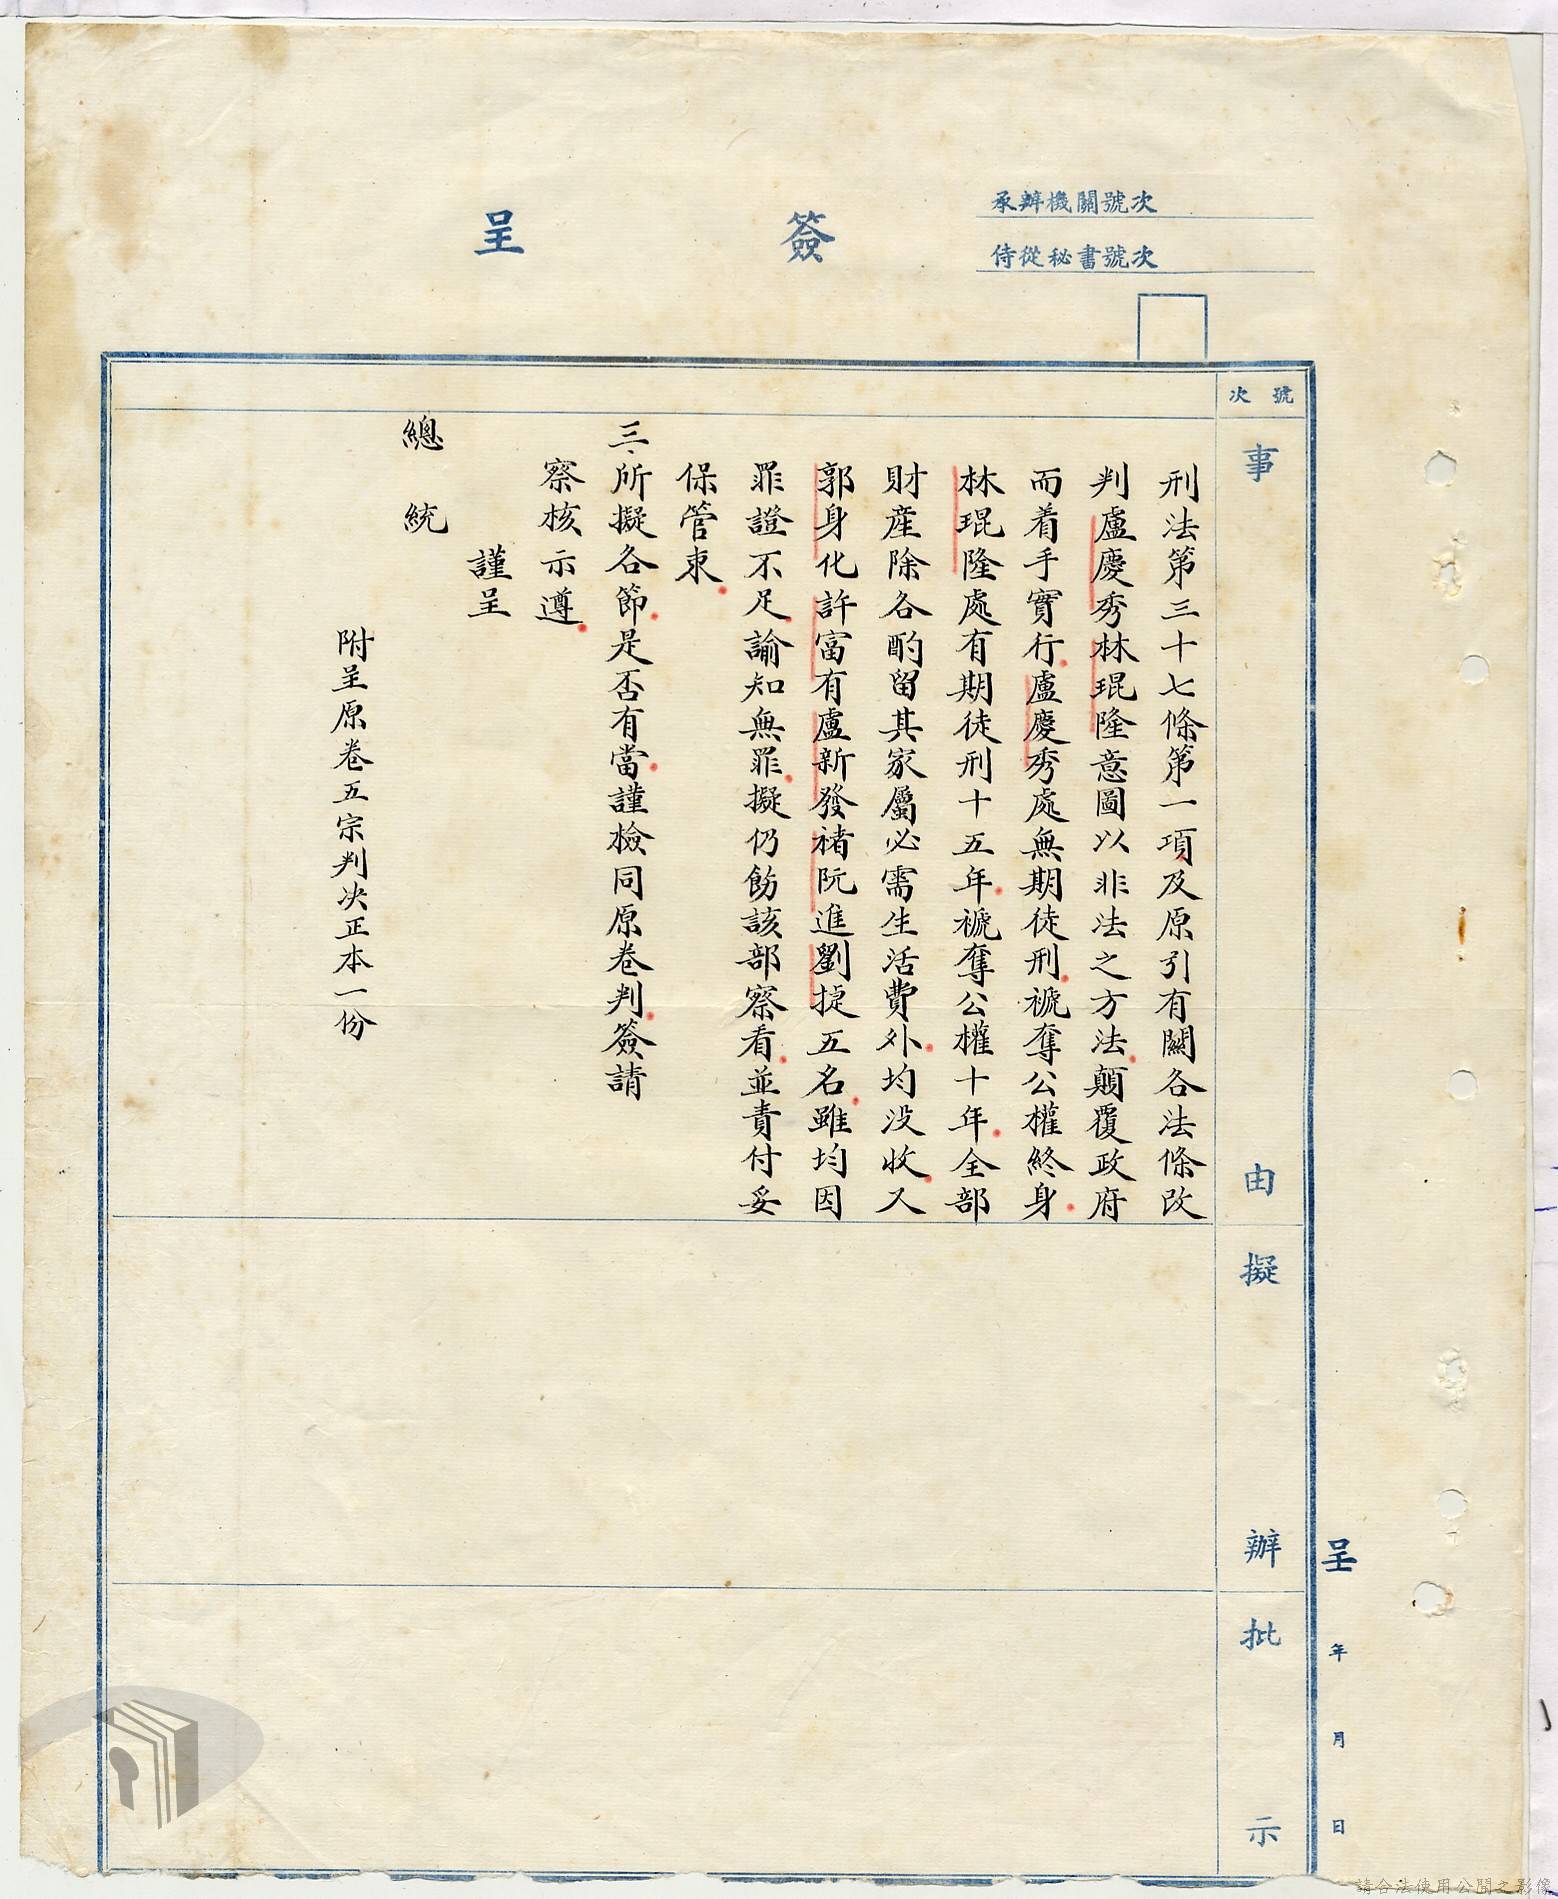 簽呈
承辦機關號次
侍從秘書號次
號次
事由
擬辦
批示
呈 年 月 日
刑法第三十七條第一項及原引有關各法條改
判盧慶秀林琨隆意圖以非法之方法顛覆政府
而着手實行盧慶秀處無期徒刑褫奪公權終身
林琨隆處有期徒刑十五年褫奪公權十年全部
財產除各酌留其家屬必需生活費外均没收又
郭身化許富有盧新發褚阮進劉捷五名雖均因
罪證不足諭知無罪擬仍飭該部察看並責付妥
保管束
三、所擬各節是否有當謹檢同原卷判簽請
察核示遵
謹呈
總統
附呈原卷五宗判决正本一份
請合法使用公開之影像